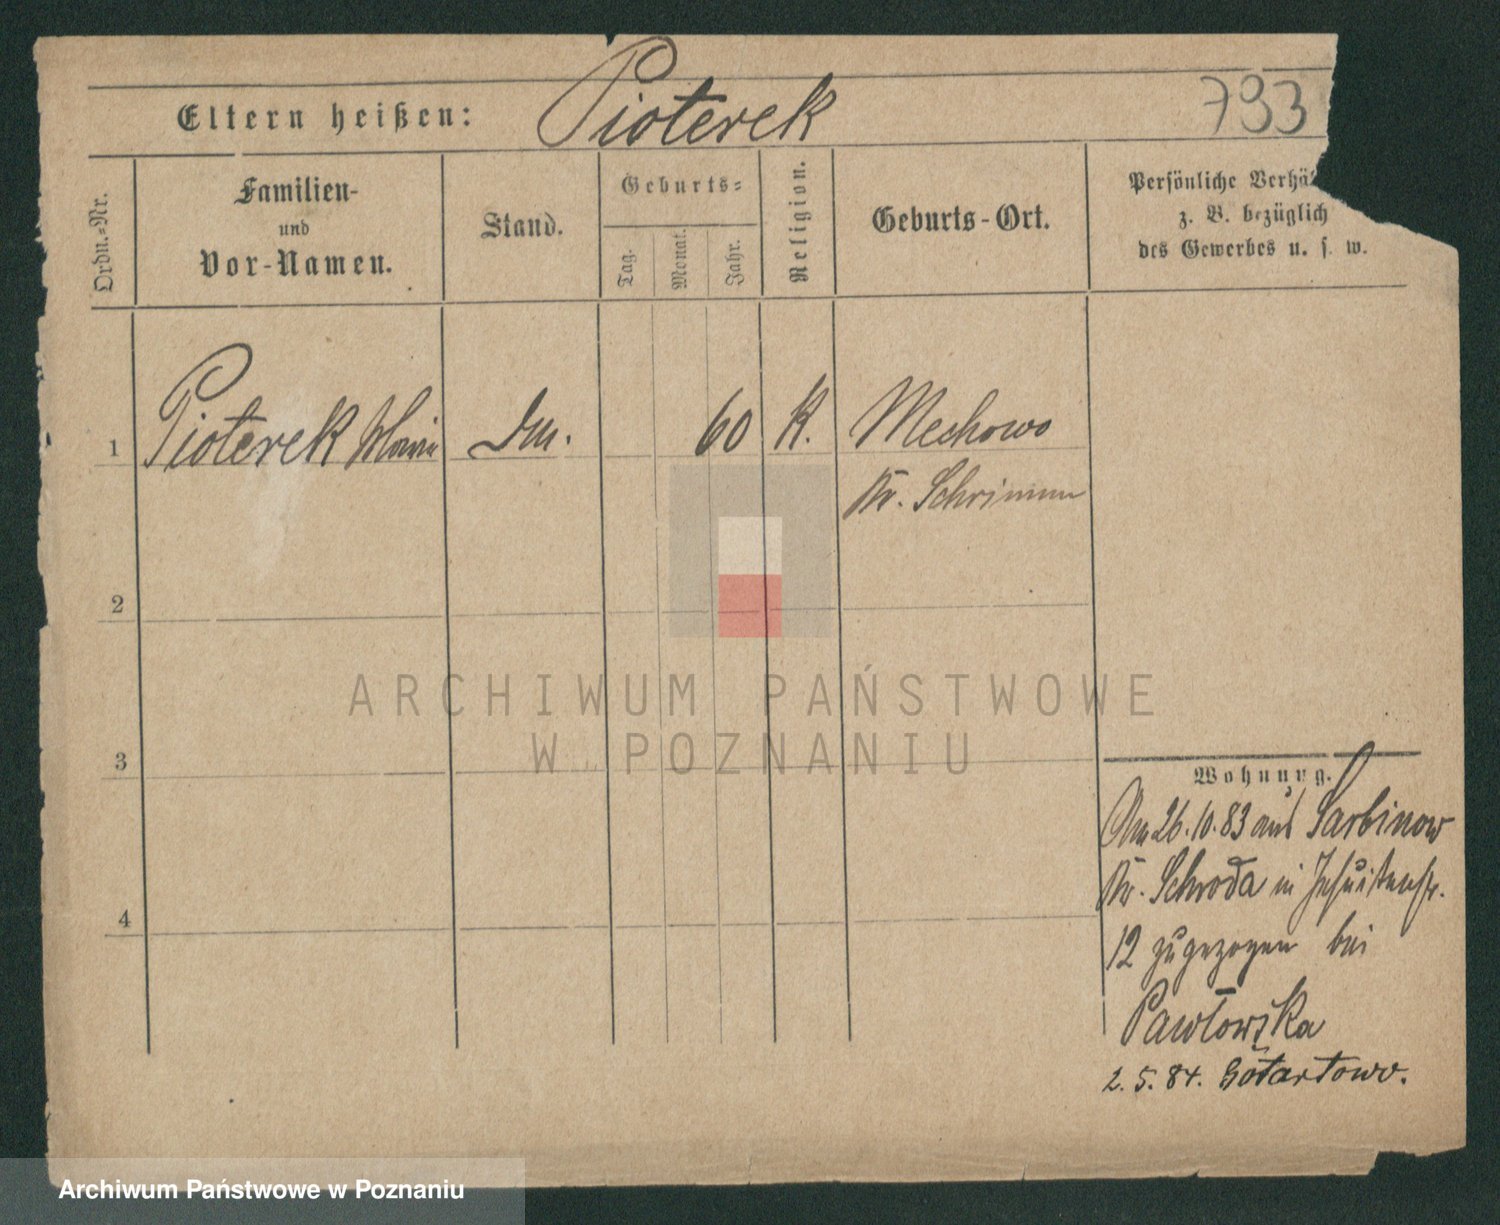 Eltern heißen: Pioterek 793
Ordn.-Nr.
Familien-
und
Vor-Namen.
Stand.
Geburts-
Tag.
Monat.
Jahr.
Religion.
Geburts-Ort.
Persönliche Verhä
z. B. bezüglich
des Gewerbes u. s. w.
1 Pioterek Marie Dm. 60 K. Mechowo
Kr. Schrimm
2
3
4
Wohnung.
Am 26.10.83 aus Sarbinowo
Kr. Schroda in Jesuitenstr.
12 zugezogen bei
Pawłowska
2.5.84. Gotartowo.
ARCHIWUM PAŃSTWOWE
W POZNANIU
Archiwum Państwowe w Poznaniu